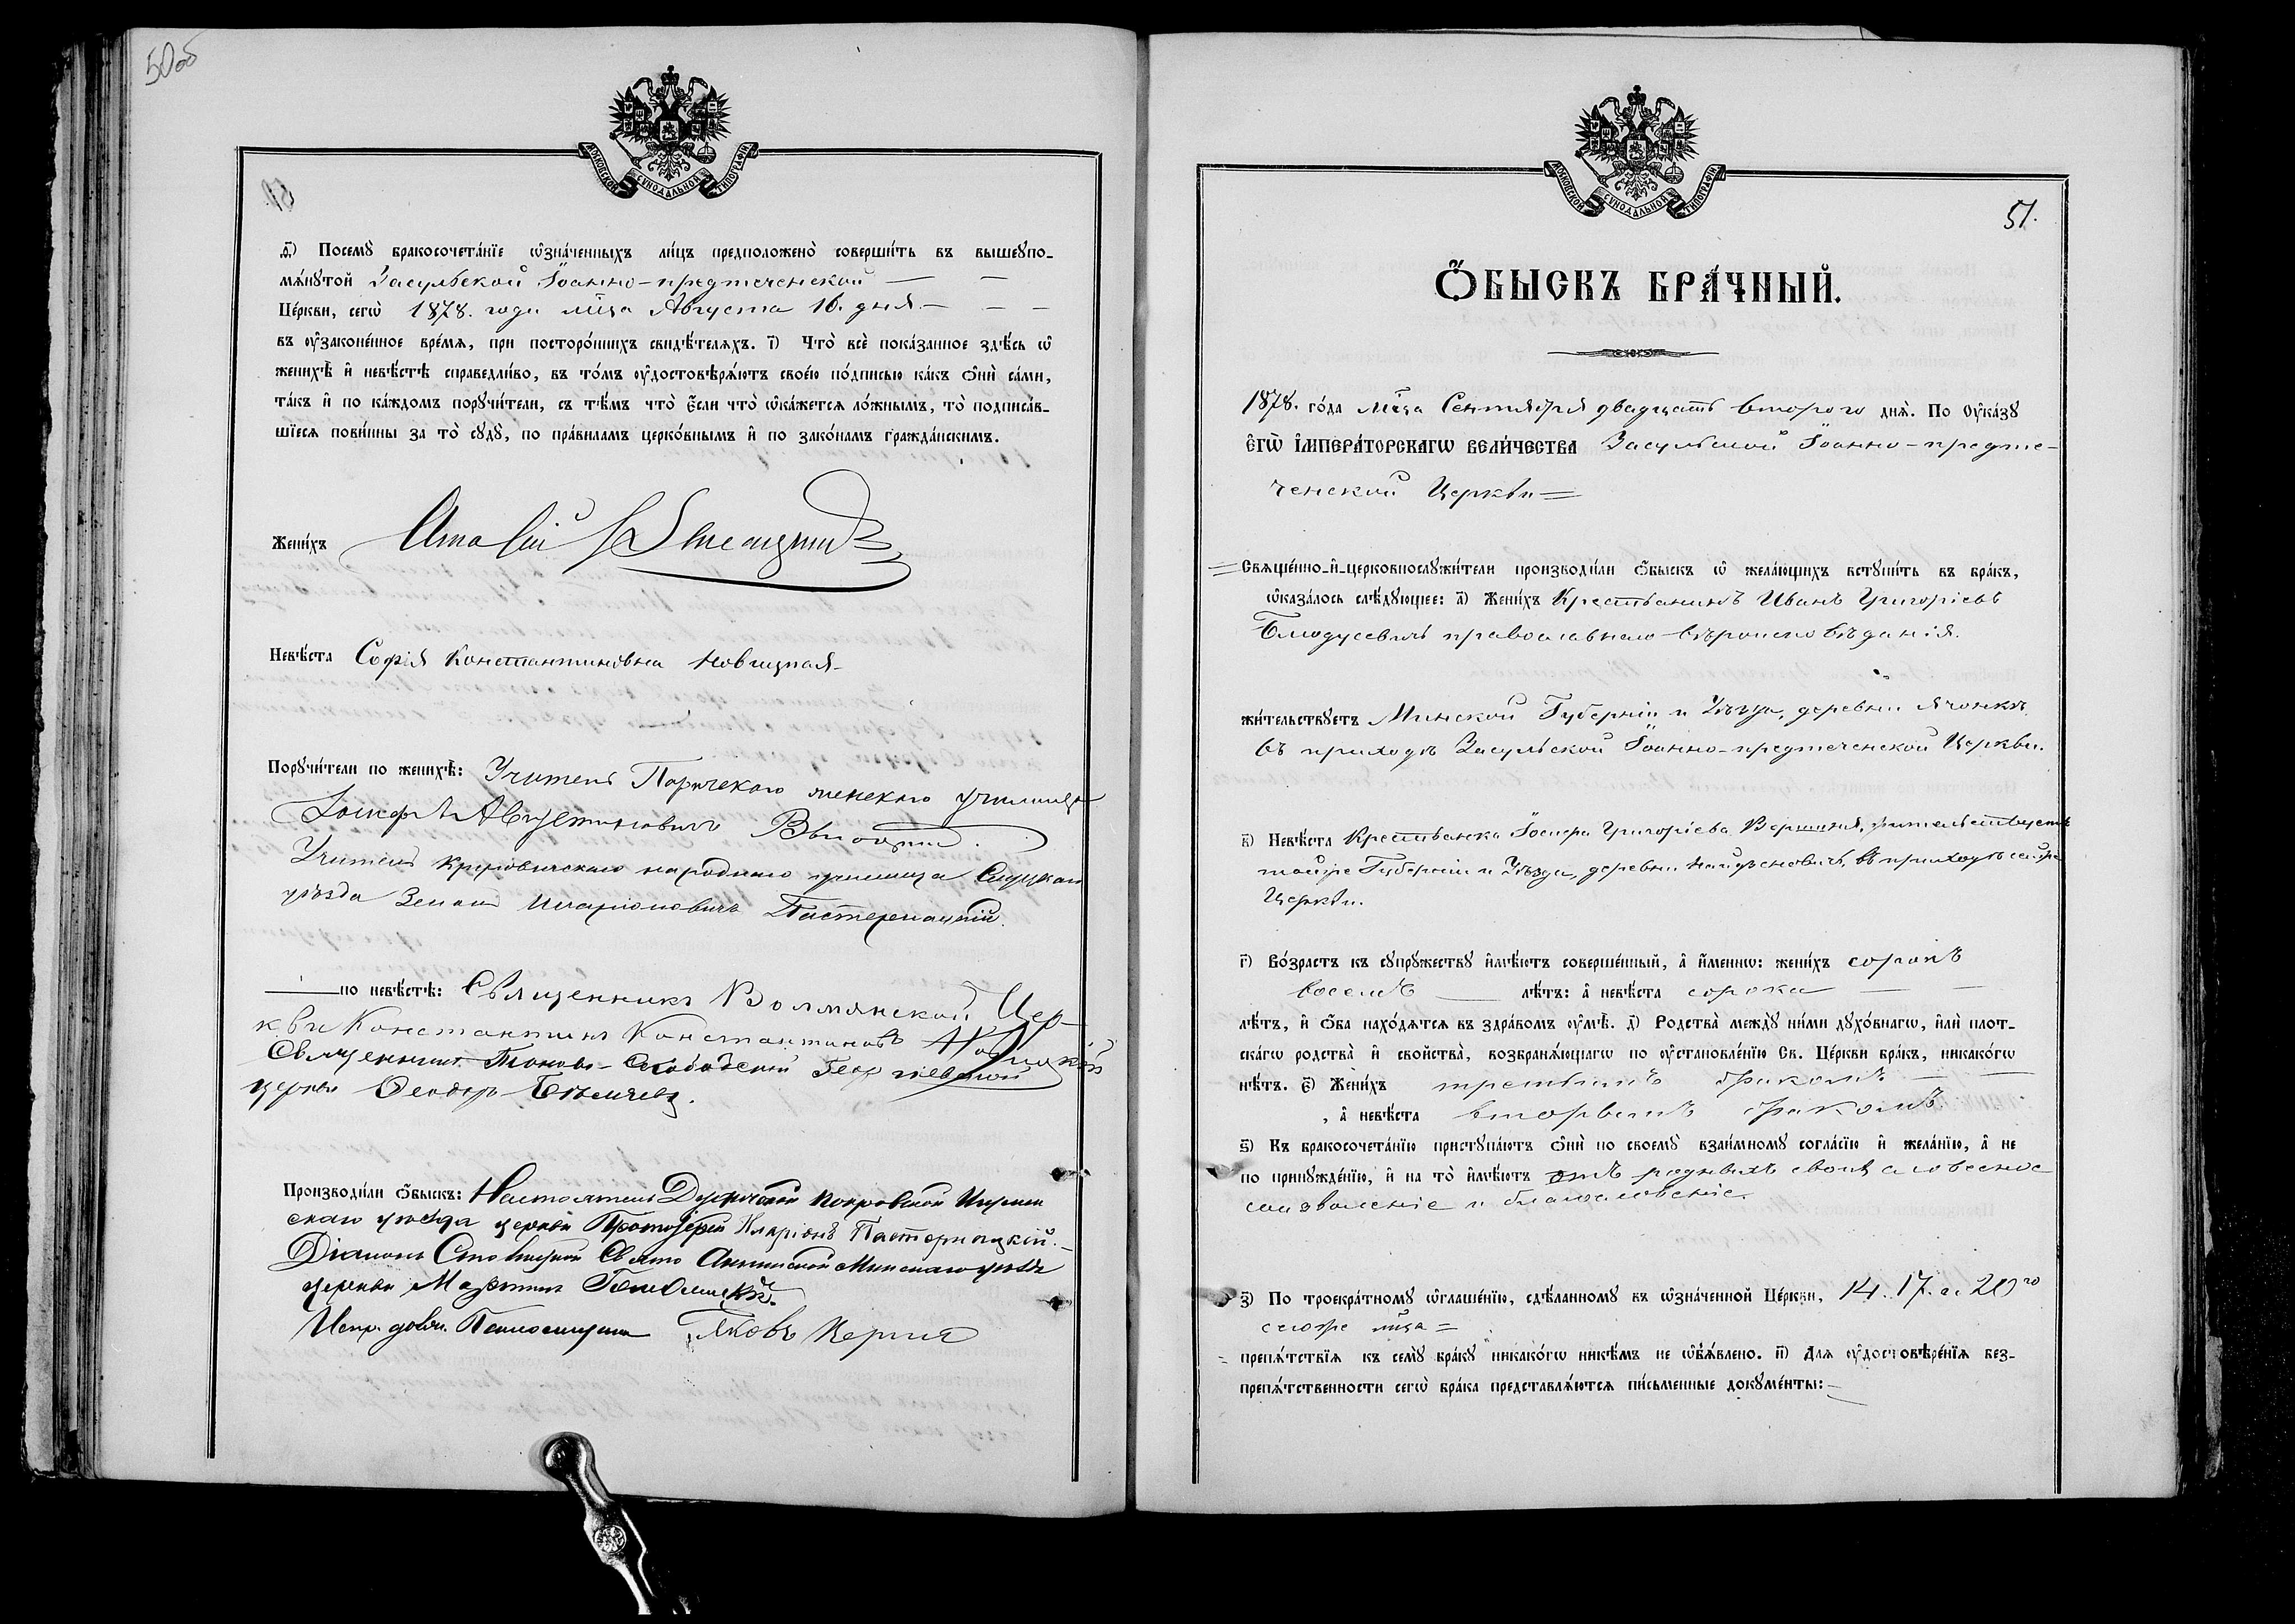 50об
МОСКОВСКОЙ СУНОДАЛЬНОЙ ТИПОГРАФІИ
Посемꙋ̀ бракосочета́нїе ѡ҆зна́ченныхъ ли́цъ предположено̀ соверши́ть въ вышеꙋпо-
мѧ́нꙋтой Засульской Іоанно-предтеченской
Це́ркви, сегѡ̀ 1878. года мѣца Августа 16. дня.
въ ᲂу҆законе́нное вре́мѧ, при посторо́ннихъ свидѣ́телѧхъ. і҃) Что̀ всѐ пока́занное здѣ́сь ѡ҆
женихѣ̀ и҆ невѣ́стѣ справедли́во, въ то́мъ ᲂу҆достовѣрѧ́ютъ свое́ю по́дписью ка́къ ѻ҆нѝ са́ми,
та́къ и҆ по ка́ждомъ порꙋчи́тели, съ тѣ́мъ что̀ є҆́сли что̀ ѡ҆ка́жетсѧ ло́жнымъ, то̀ подписа́в-
шїесѧ пови́нны за то̀ сꙋдꙋ̀, по пра́виламъ церко́внымъ и҆ по зако́намъ гражда́нскимъ.
Жени́хъ
Невѣ́ста Софія Константиновна Новицкая
Порꙋчи́тели по женихѣ̀: Учитель Паричского женскаго училища
Іосифъ Августиновичъ
Учитель народнаго училища Слуцкаго
уѣзда Иларіоновичъ Пастернацкій.
по невѣ́стѣ: Священникъ Волмянской Цер-
кви Константинъ Константиновъ Новицкій
Священникъ Слободской Георгіевской
церкви Ѳеодоръ
Производи́ли ѻ҆́быскъ: Настоятель Покровской Игумен
скаго уѣзда церкви Протоіерей Иларіонъ Пастернацкій.
Діаконъ Свято Минскаго уѣзда
церкви
Испр. должн. Псаломщика Яковъ Керния
51.
МОСКОВСКОЙ СУНОДАЛЬНОЙ ТИПОГРАФІИ
Ѻ҆́БЫСКЪ БРА́ЧНЫЙ.
1878. го́да мѣца Сентября двадцать второго днѧ̀. По Оу҆ка́зꙋ
Є҆ГѠ̀ И҆МПЕРА́ТОРСКАГѠ ВЕЛИ́ЧЕСТВА Засульской Іоанно-предте-
ченской Церкви
Свѧще́нно-и҆-церковнослꙋжи́тели производи́ли ѻ҆́быскъ ѡ҆ жела́ющихъ встꙋпи́ть въ бра́къ,
ѡ҆каза́лось слѣ́дꙋющее: а҃) Жени́хъ Крестьянинъ Иванъ Григоріевъ
православнаго вѣроисповѣданія.
жи́тельствꙋетъ Минской Губерніи и Уѣзда, деревни Ячонкѣ
въ приходѣ Засульской Іоанно-предтеченской Церкви.
в҃) Невѣ́ста Крестьянка Григоріева жительствуетъ
той же Губерніи и Уѣзда, деревни въ приходѣ сей же
Церкви.
г҃) Во́зрастъ къ сꙋпрꙋ́жествꙋ и҆мѣ́ютъ соверше́нный, а҆ и҆́меннѡ: жени́хъ сорокъ
восемь лѣ́тъ: а҆ невѣ́ста сорока
лѣ́тъ, и҆ ѻ҆́ба нахо́дѧтсѧ въ здра́вомъ ᲂу҆мѣ̀. д҃) Родства̀ междꙋ̀ ни́ми дꙋхо́внагѡ, и҆лѝ плот-
ска́гѡ родства̀ и҆ сво́йства̀, возбранѧ́ющагѡ по ᲂу҆становле́нїю Св. Це́ркви бра́къ, никако́гѡ
нѣ́тъ. є҃) Жени́хъ третьимъ бракомъ
, а҆ невѣ́ста вторымъ бракомъ.
ѕ҃) Къ бракосочета́нїю пристꙋпа́ютъ ѻ҆нѝ по своемꙋ̀ взаи́мномꙋ согла́сїю и҆ жела́нїю, а҆ не
по принꙋжде́нїю, и҆ на то̀ и҆мѣ́ютъ отъ родныхъ своихъ словесное
соизволеніе и благословеніе.
з҃) По троекра́тномꙋ ѡ҆глаше́нїю, сдѣ́ланномꙋ въ ѡ҆зна́ченной Це́ркви, 14. 17. и 20го
сего же мѣца
препѧ́тствїѧ къ семꙋ̀ бра́кꙋ никако́гѡ никѣ́мъ не ѡ҆б̾ѧ́влено. и҃) Длѧ ᲂу҆достовѣре́нїѧ без-
препѧ́тственности сегѡ̀ бра́ка представлѧ́ютсѧ пи́сьменные докꙋме́нты: